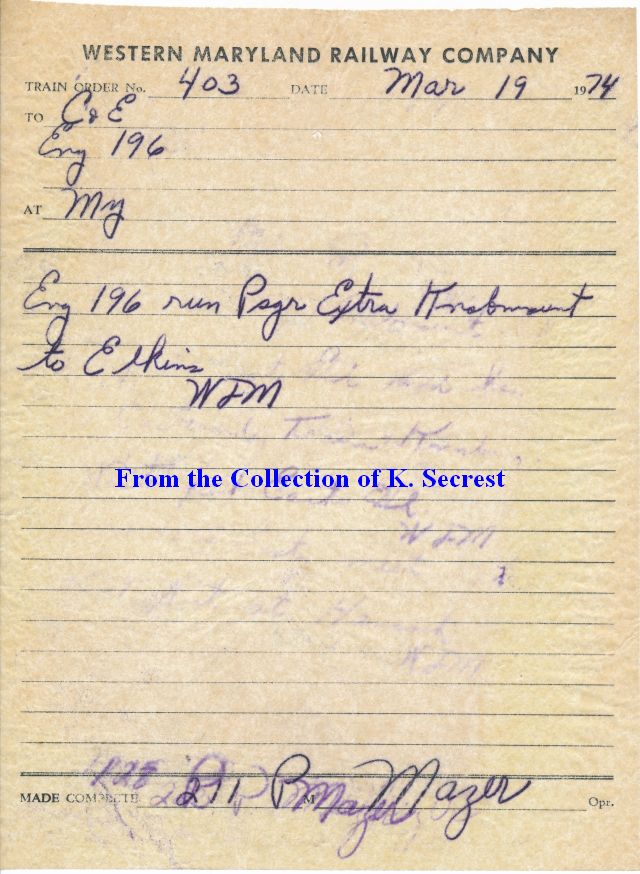 WESTERN MARYLAND RAILWAY COMPANY
TRAIN ORDER No. 403 DATE Mar 19 1974
TO C&E
Eng 196
AT My
Eng 196 run Psgr Extra Knobmount
to Elkins
WJM
From the Collection of K. Secrest
WJM
WJM
MADE COMPLETE 211 P M Mazer Opr.